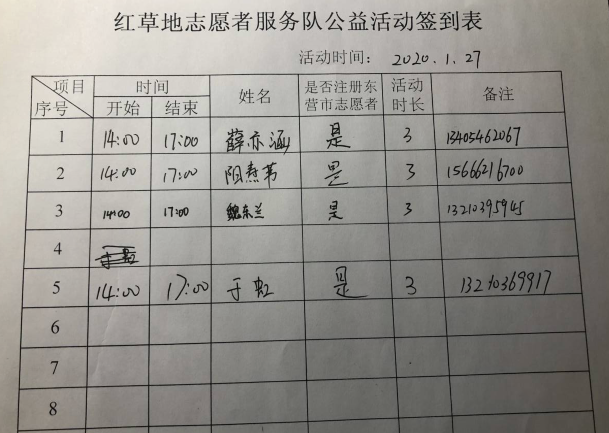 红草地志愿者服务队公益活动签到表
活动时间： 2020.1.27
项目 序号 时间 开始 结束 姓名 是否注册东营市志愿者 活动时长 备注
1 14:00 17:00 薛亦涵 是 3 13405462067
2 14:00 17:00 阳焘苇 是 3 15666216700
3 14:00 17:00 魏东兰 是 3 13210395945
4
5 14:00 17:00 于虹 是 3 13210369917
6
7
8